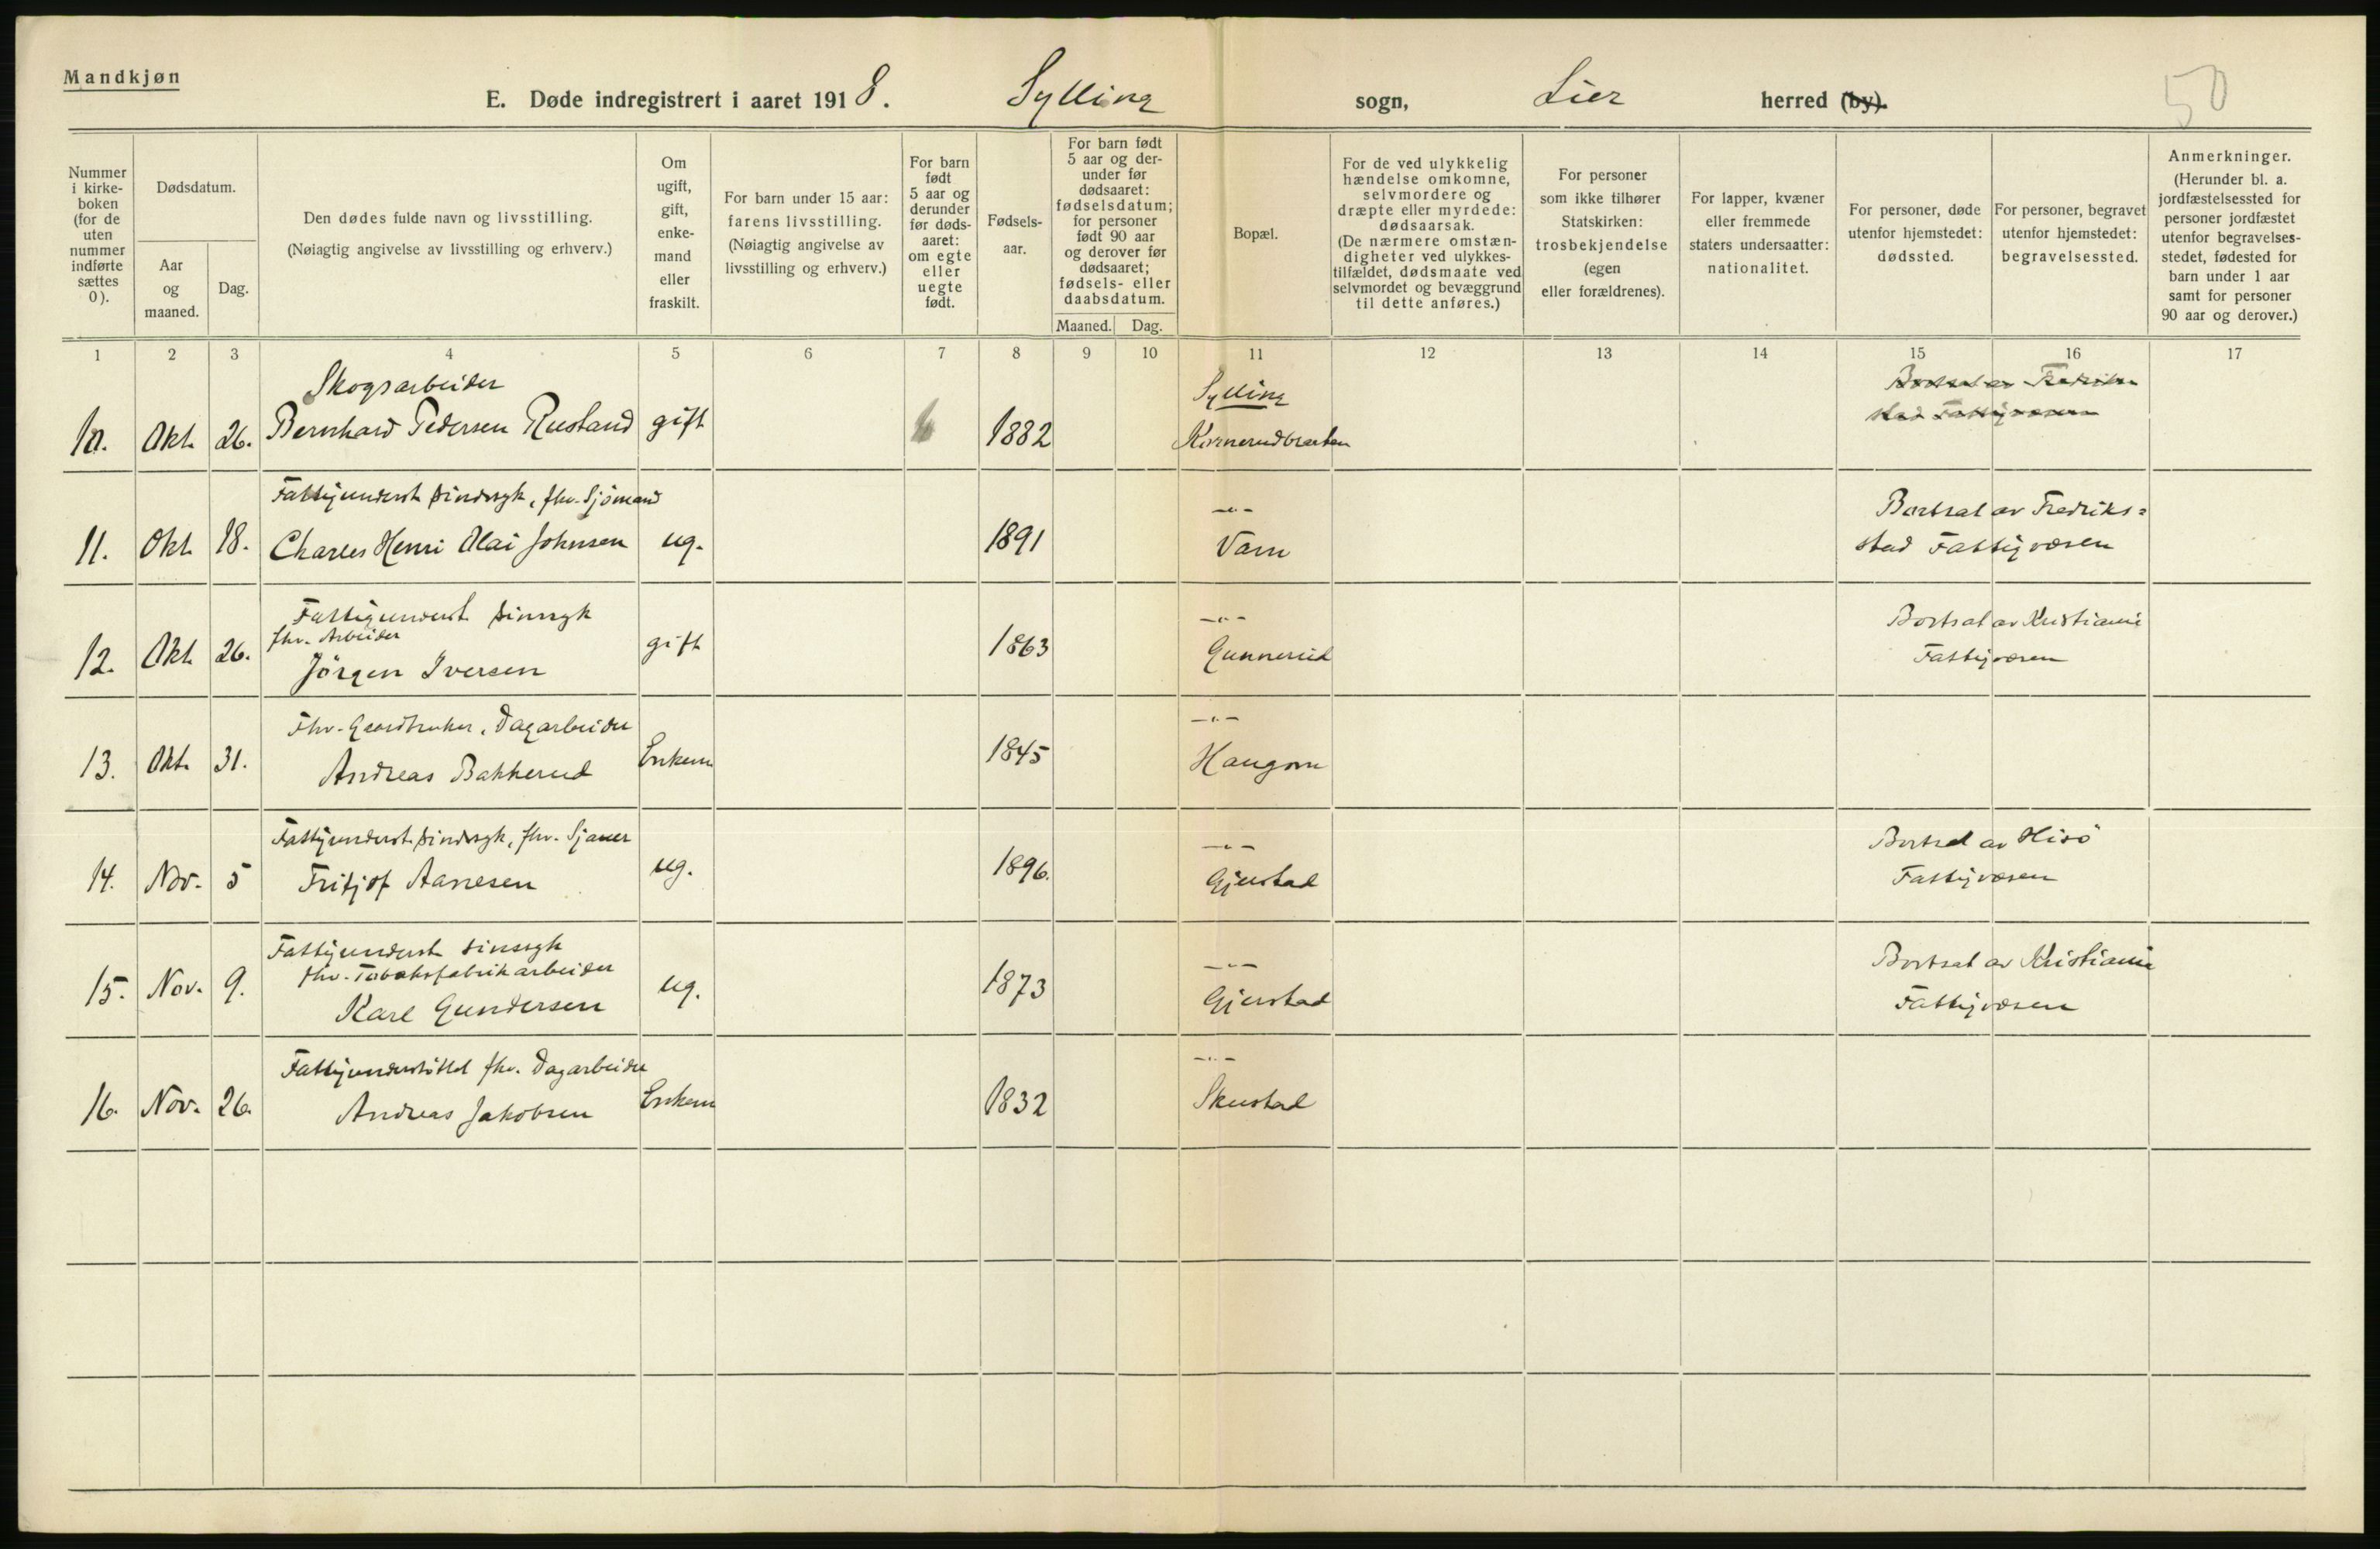 Mandkjøn
E. Døde indregistrert i aaret 1918. Sylling sogn, Lier herred (by).
50
Nummer i kirkeboken (for de uten nummer indførte sættes 0).
Dødsdatum.
Aar og maaned.
Dag.
Den dødes fulde navn og livsstilling.
(Nøiagtig angivelse av livsstilling og erhverv.)
Om ugift, gift, enkemand eller fraskilt.
For barn under 15 aar: farens livsstilling. (Nøiagtig angivelse av livsstilling og erhverv.)
For barn født 5 aar og derunder før dødsaaret: om egte eller uegte født.
Fødselsaar.
For barn født 5 aar og derunder før dødsaaret: fødselsdatum; for personer født 90 aar og derover før dødsaaret; fødsels- eller daabsdatum.
Maaned.
Dag.
Bopæl.
For de ved ulykkelig hændelse omkomne, selvmordere og dræpte eller myrdede: dødsaarsak. (De nærmere omstændigheter ved ulykkestilfældet, dødsmaate ved selvmordet og bevæggrund til dette anføres.)
For personer som ikke tilhører Statskirken: trosbekjendelse (egen eller forældrenes).
For lapper, kvæner eller fremmede staters undersaatter: nationalitet.
For personer, døde utenfor hjemstedet: dødssted.
For personer, begravet utenfor hjemstedet: begravelsessted.
Anmerkninger. (Herunder bl. a. jordfæstelsessted for personer jordfæstet utenfor begravelsesstedet, fødested for barn under 1 aar samt for personer 90 aar og derover.)
1 2 3 4 5 6 7 8 9 10 11 12 13 14 15 16 17
Skogsarbeider
Sylling
Bortsat av Fredrikstad Fattigvæsen
10. Okt. 26. Bernhard Pedersen Rustand gift 1882 Kornerudbraaten
Fattigunderst. sindssyk, fhv. Sjömand
-"-
Bortsat av Fredriks=
11. Okt. 18. Charles Henri Olai Johnsen ug. 1891 Varn stad Fattigvæsen
Fattigunderst. sinssyk
fhv. Arbeider
-"-
Bortsat av Kristiania
12. Okt. 26. Jörgen Iversen gift 1863 Gunnerud Fattigvæsen
Fhv. Gaardbruker, Dagarbeider
-"-
13. Okt. 31. Andreas Bakkerud Enkem 1845 Haugom
Fattigunderst. sindssyk, fhv. Sjauer
-"-
Bortsat av Hisö
14. Nov. 5 Fritjof Aanesen ug. 1896. Gjerstad Fattigvæsen
Fattigunderst. sinssyk
fhv. Tobaksfabrikarbeider
-"-
Bortsat av Kristiania
15. Nov. 9. Karl Gundersen ug. 1873 Gjerstad Fattigvæsen
Fattigunderstöttet fhv. Dagarbeider
-"-
16. Nov. 26. Andreas Jakobsen Enkem 1832 Skustad